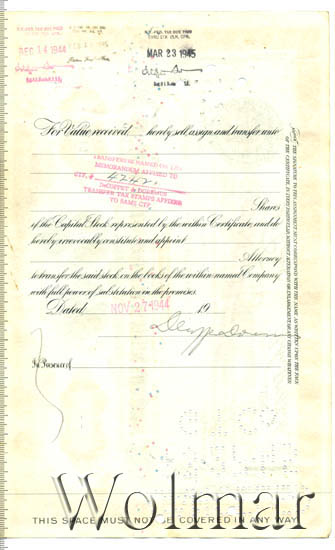 DEC 14 1944
MAR 23 1945
For Value received hereby sell, assign and transfer unto
TRANSFEREE NAMED ON
MEMORANDUM AFFIXED TO
CTF. # 4242
DeCOPPET & DOREMUS
TRANSFER TAX STAMPS AFFIXED
TO SAME CTF.
Shares
of the Capital Stock represented by the within Certificate, and do
hereby irrevocably constitute and appoint
Attorney
to transfer the said stock on the books of the within named Company
with full power of substitution in the premises.
Dated NOV 27 1944 19
In Presence of
NOTICE: THE SIGNATURE TO THIS ASSIGNMENT MUST CORRESPOND WITH THE NAME AS WRITTEN UPON THE FACE
OF THE CERTIFICATE, IN EVERY PARTICULAR WITHOUT ALTERATION OR ENLARGEMENT OR ANY CHANGE WHATEVER.
Wolmar
THIS SPACE MUST NOT BE COVERED IN ANY WAY